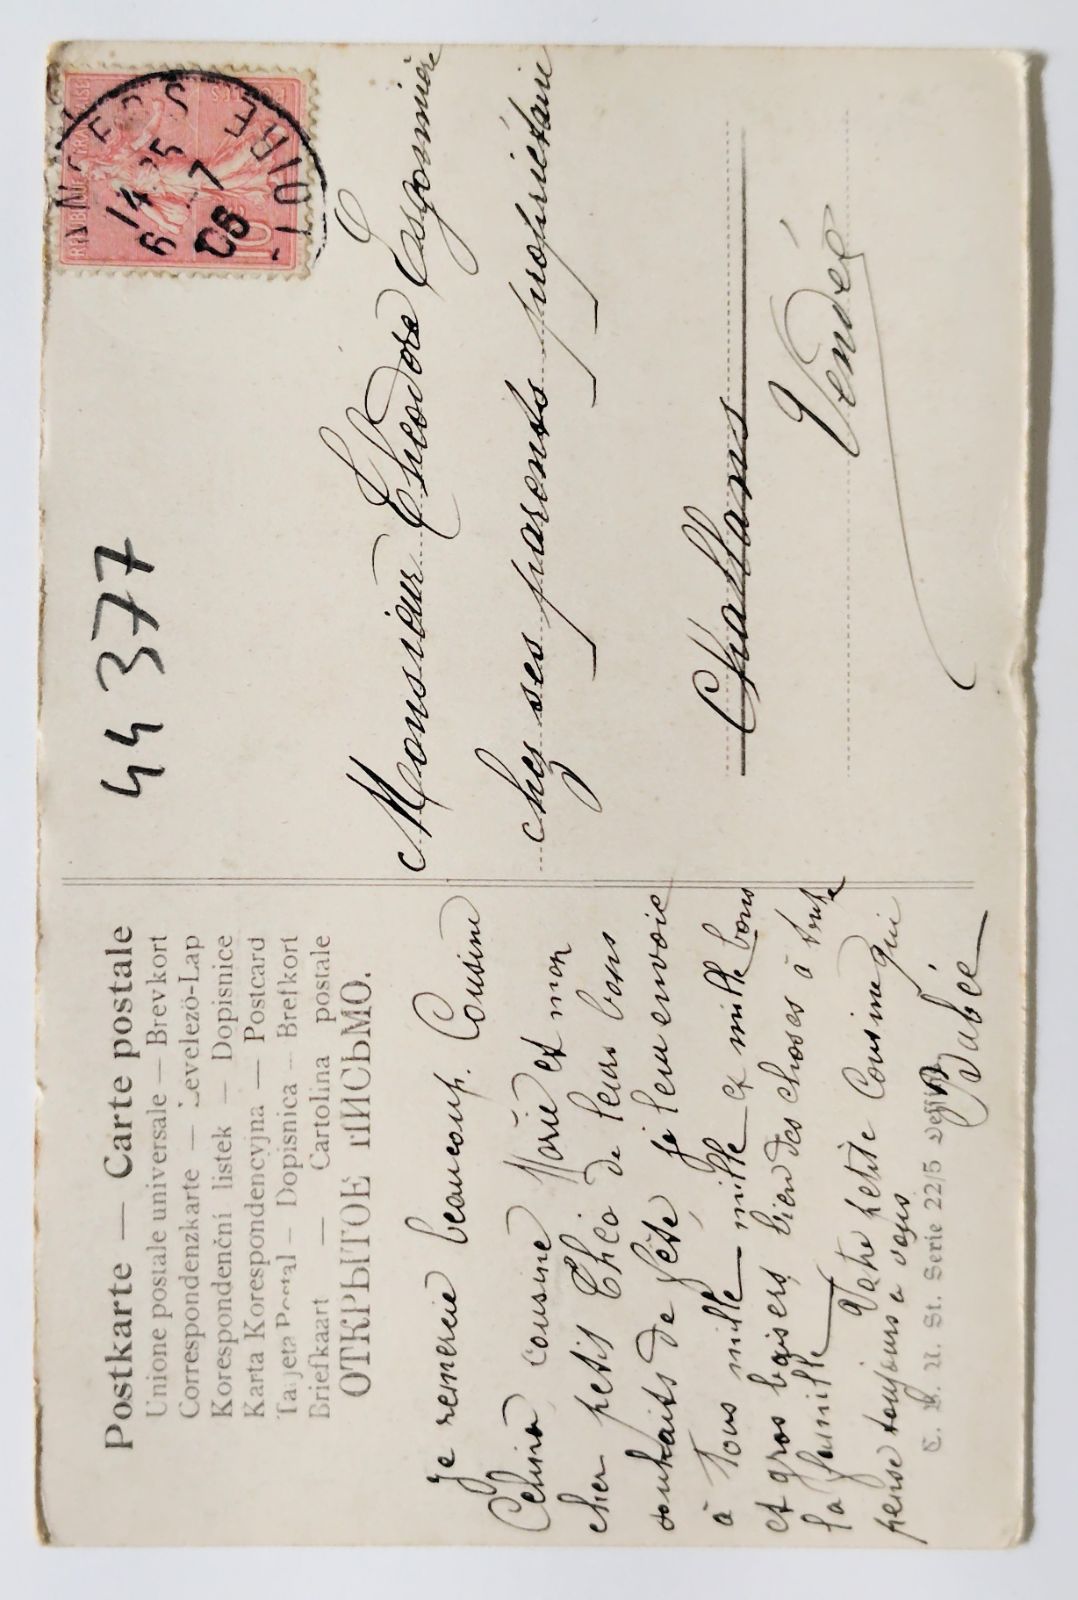 Postkarte — Carte postale
Unione postale universale — Brevkort
Correspondenzkarte — Levelezö-Lap
Korespondenční lístek — Dopisnice
Karta Korespondencyjna — Postcard
Tarjeta Postal — Dopisnica — Brefkort
Briefkaart — Cartolina postale
ОТКРЫТОЕ ПИСЬМО.
je remercie beaucoup. Cousine
Célina, cousine Marie et mon
cher petit Théo de leurs bons
souhaits de fête, je leur envoie
à Tous mille mille et mille bons
et gros baisers, bien des choses à toute
la famille Votre petite Cousine qui
pense toujours a vous
C. B. N. St. Serie 22/5
44 377
RÉPUBLIQUE FRANÇAISE
POSTES
10
ANGERS
14 25
6 -7
06
LOIRE
Monsieur Théodore
chez ses parents propriétaire
Challans
Vendée